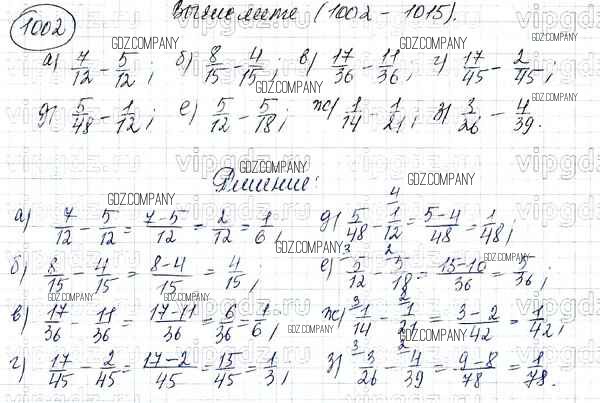 1002 Вычислите (1002 - 1015).
а) 7/12 - 5/12; б) 8/15 - 4/15; в) 17/36 - 11/36; г) 17/45 - 2/45;
д) 5/48 - 1/12; е) 5/12 - 5/18; ж) 1/14 - 1/21; з) 3/26 - 4/39.
Решение:
а) 7/12 - 5/12 = (7-5)/12 = 2/12 = 1/6;
б) 8/15 - 4/15 = (8-4)/15 = 4/15;
в) 17/36 - 11/36 = (17-11)/36 = 6/36 = 1/6;
г) 17/45 - 2/45 = (17-2)/45 = 15/45 = 1/3;
д) 5/48 - 4 1/12 = (5-4)/48 = 1/48;
е) 3 5/12 - 2 5/18 = (15-10)/36 = 5/36;
ж) 3 1/14 - 2 1/21 = (3-2)/42 = 1/42;
з) 3 3/26 - 2 4/39 = (9-8)/78 = 1/78.
GDZ.COMPANY
vipgdz.ru